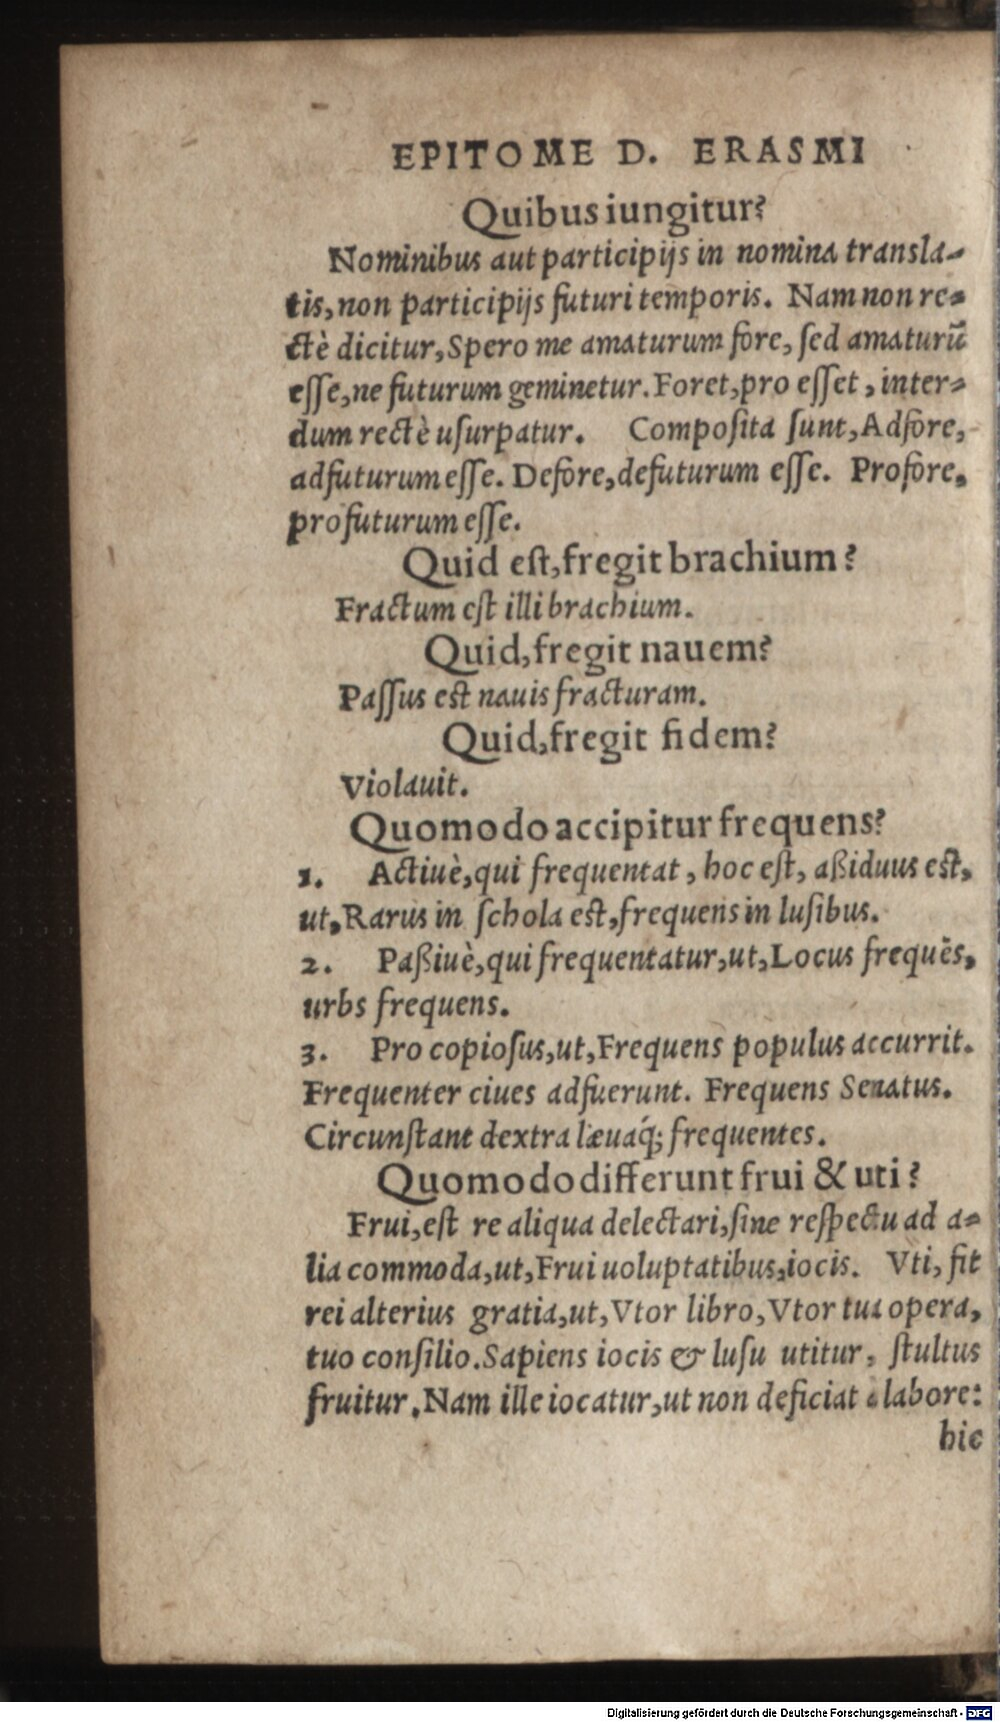 EPITOME D. ERASMI
Quibus iungitur?
Nominibus aut participijs in nomina transla-
tis, non participijs futuri temporis. Nam non re-
ctè dicitur, Spero me amaturum fore, sed amaturū
esse, ne futurum geminetur. Foret, pro esset, inter-
dum rectè usurpatur. Composita sunt, Adfore,
adfuturum esse. Defore, defuturum esse. Profore,
profuturum esse.
Quid est, fregit brachium?
Fractum est illi brachium.
Quid, fregit nauem?
Passus est nauis fracturam.
Quid, fregit fidem?
Violauit.
Quomodo accipitur frequens?
1. Actiuè, qui frequentat, hoc est, aßiduus est,
ut, Rarus in schola est, frequens in lusibus.
2. Paßiuè, qui frequentatur, ut, Locus frequēs,
urbs frequens.
3. Pro copiosus, ut, Frequens populus accurrit.
Frequenter ciues adfuerunt. Frequens Senatus.
Circunstant dextra læuaq́; frequentes.
Quomodo differunt frui & uti?
Frui, est re aliqua delectari, sine respectu ad a-
lia commoda, ut, Frui uoluptatibus, iocis. Vti, fit
rei alterius gratia, ut, Vtor libro, Vtor tua opera,
tuo consilio. Sapiens iocis & lusu utitur, stultus
fruitur. Nam ille iocatur, ut non deficiat à labore:
hic
Digitalisierung gefördert durch die Deutsche Forschungsgemeinschaft - DFG